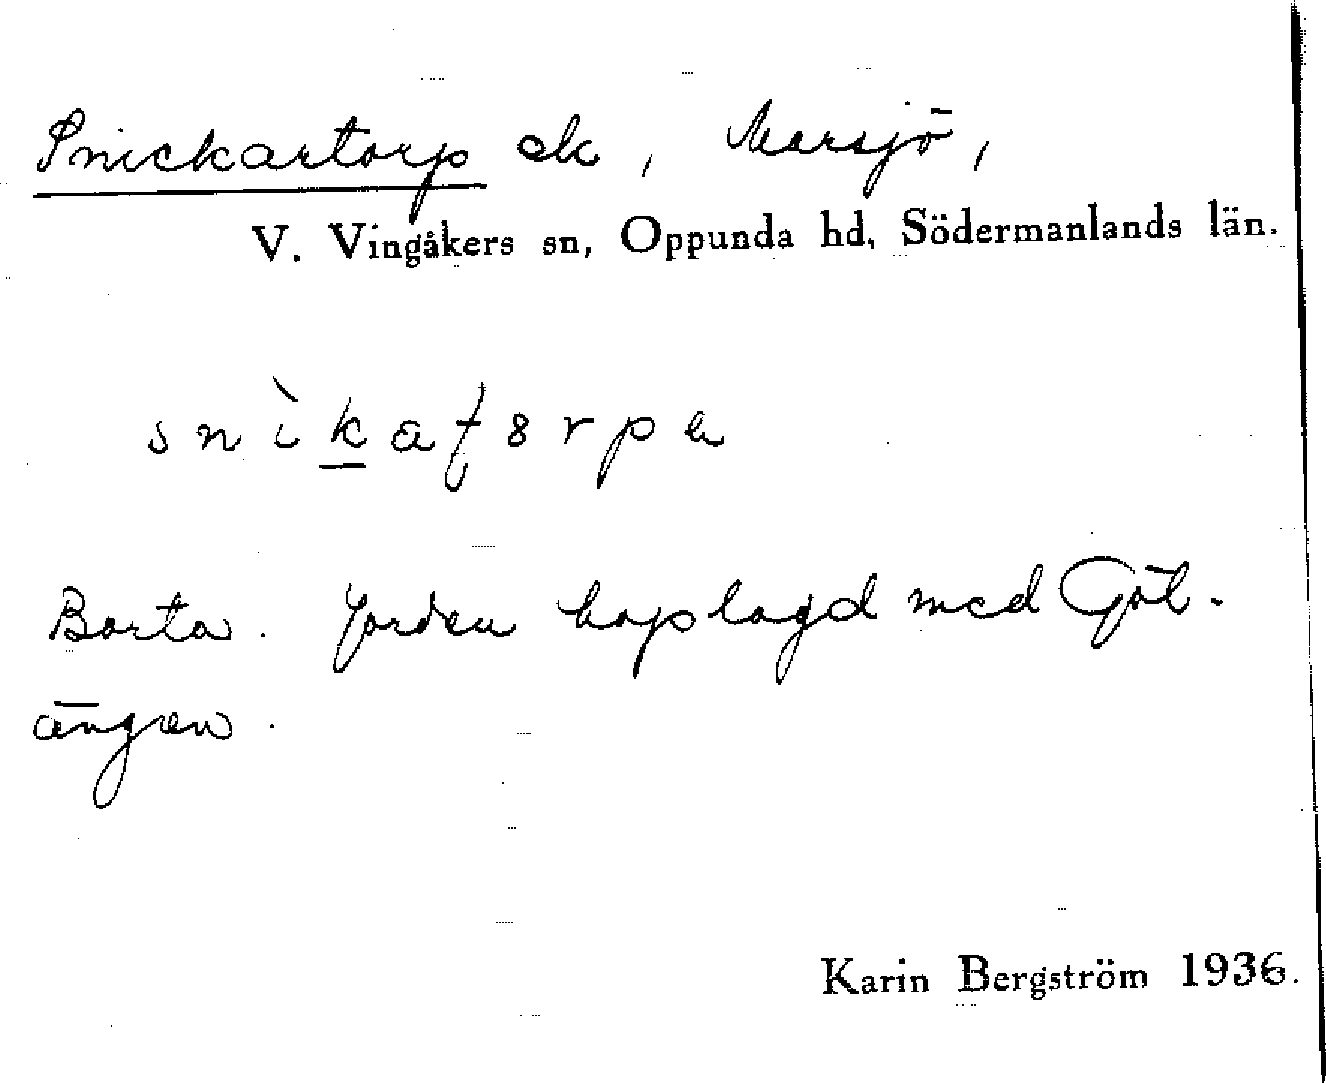 Snickartorp ek, Marsjö,
V. Vingåkers sn, Oppunda hd, Södermanlands län.
snìkaƭ8rpa
Borta. Jorden hoplagd med Göl-
ängen.
Karin Bergström 1936.